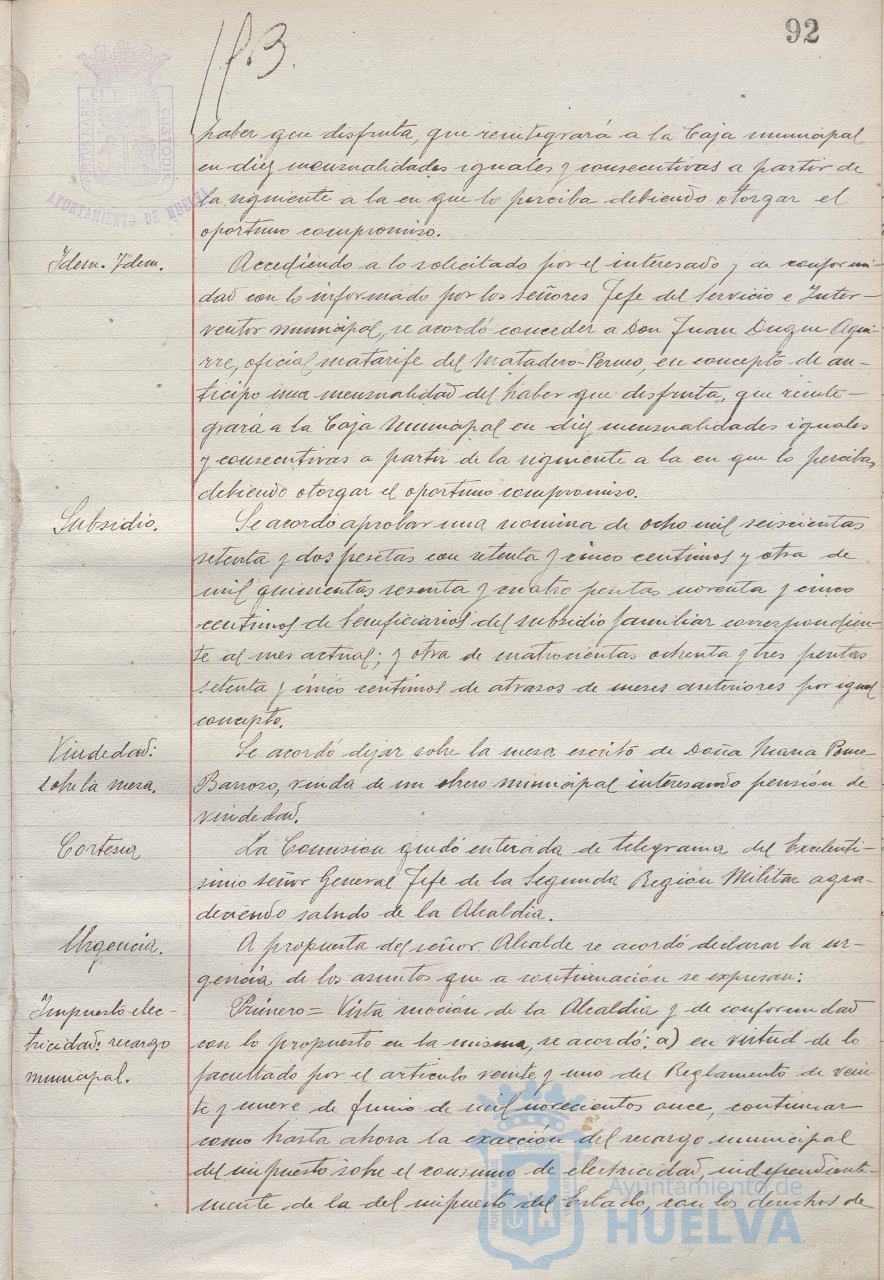 92
haber que disfruta, que reintegrará a la Caja municipal
en diez mensualidades iguales y consecutivas a partir de
la siguiente a la en que lo perciba debiendo otorgar el
oportuno compromiso.
Idem. Idem.
Accediendo a lo solicitado por el interesado y de conformi-
dad con lo informado por los señores Jefe del Servicio e Inter-
ventor municipal, se acordó conceder a Don Juan Duque Agui-
rre, oficial matarife del Matadero-Perneo, en concepto de an-
ticipo una mensualidad del haber que disfruta, que reinte-
grará a la Caja Municipal en diez mensualidades iguales
y consecutivas a partir de la siguiente a la en que lo perciba,
debiendo otorgar el oportuno compromiso.
Subsidio.
Se acordó aprobar una nomina de ocho mil seiscientas
setenta y dos pesetas con setenta y cinco centimos y otra de
mil quinientas sesenta y cuatro pesetas noventa y cinco
centimos de beneficiarios del subsidio familiar correspondien-
te al mes actual; y otra de cuatrocientas ochenta y tres pesetas
setenta y cinco centimos de atrasos de meses anteriores por igual
concepto.
Viudedad:
sobre la mesa.
Se acordó dejar sobre la mesa escrito de Doña Maria Ponce
Barroso, viuda de un obrero municipal interesando pensión de
viudedad.
Cortesia
La Comision quedó enterada de telegrama del Excelenti-
simo señor General Jefe de la Segunda Región Militar agra-
deciendo saludo de la Alcaldia.
Urgencia.
A propuesta del señor Alcalde se acordó declarar la ur-
gencia de los asuntos que a continuación se expresan:
Impuesto elec-
tricidad: recargo
municipal.
Primero = Vista moción de la Alcaldia y de conformidad
con lo propuesto en la misma, se acordó: a) en virtud de lo
facultado por el articulo veinte y uno del Reglamento de vein-
te y nueve de Junio de mil novecientos once, continuar
como hasta ahora la exacción del recargo municipal
del impuesto sobre el consumo de electricidad, independiente-
mente de la del impuesto del Estado, con los derechos de
AYUNTAMIENTO DE HUELVA
Ayuntamiento de
HUELVA